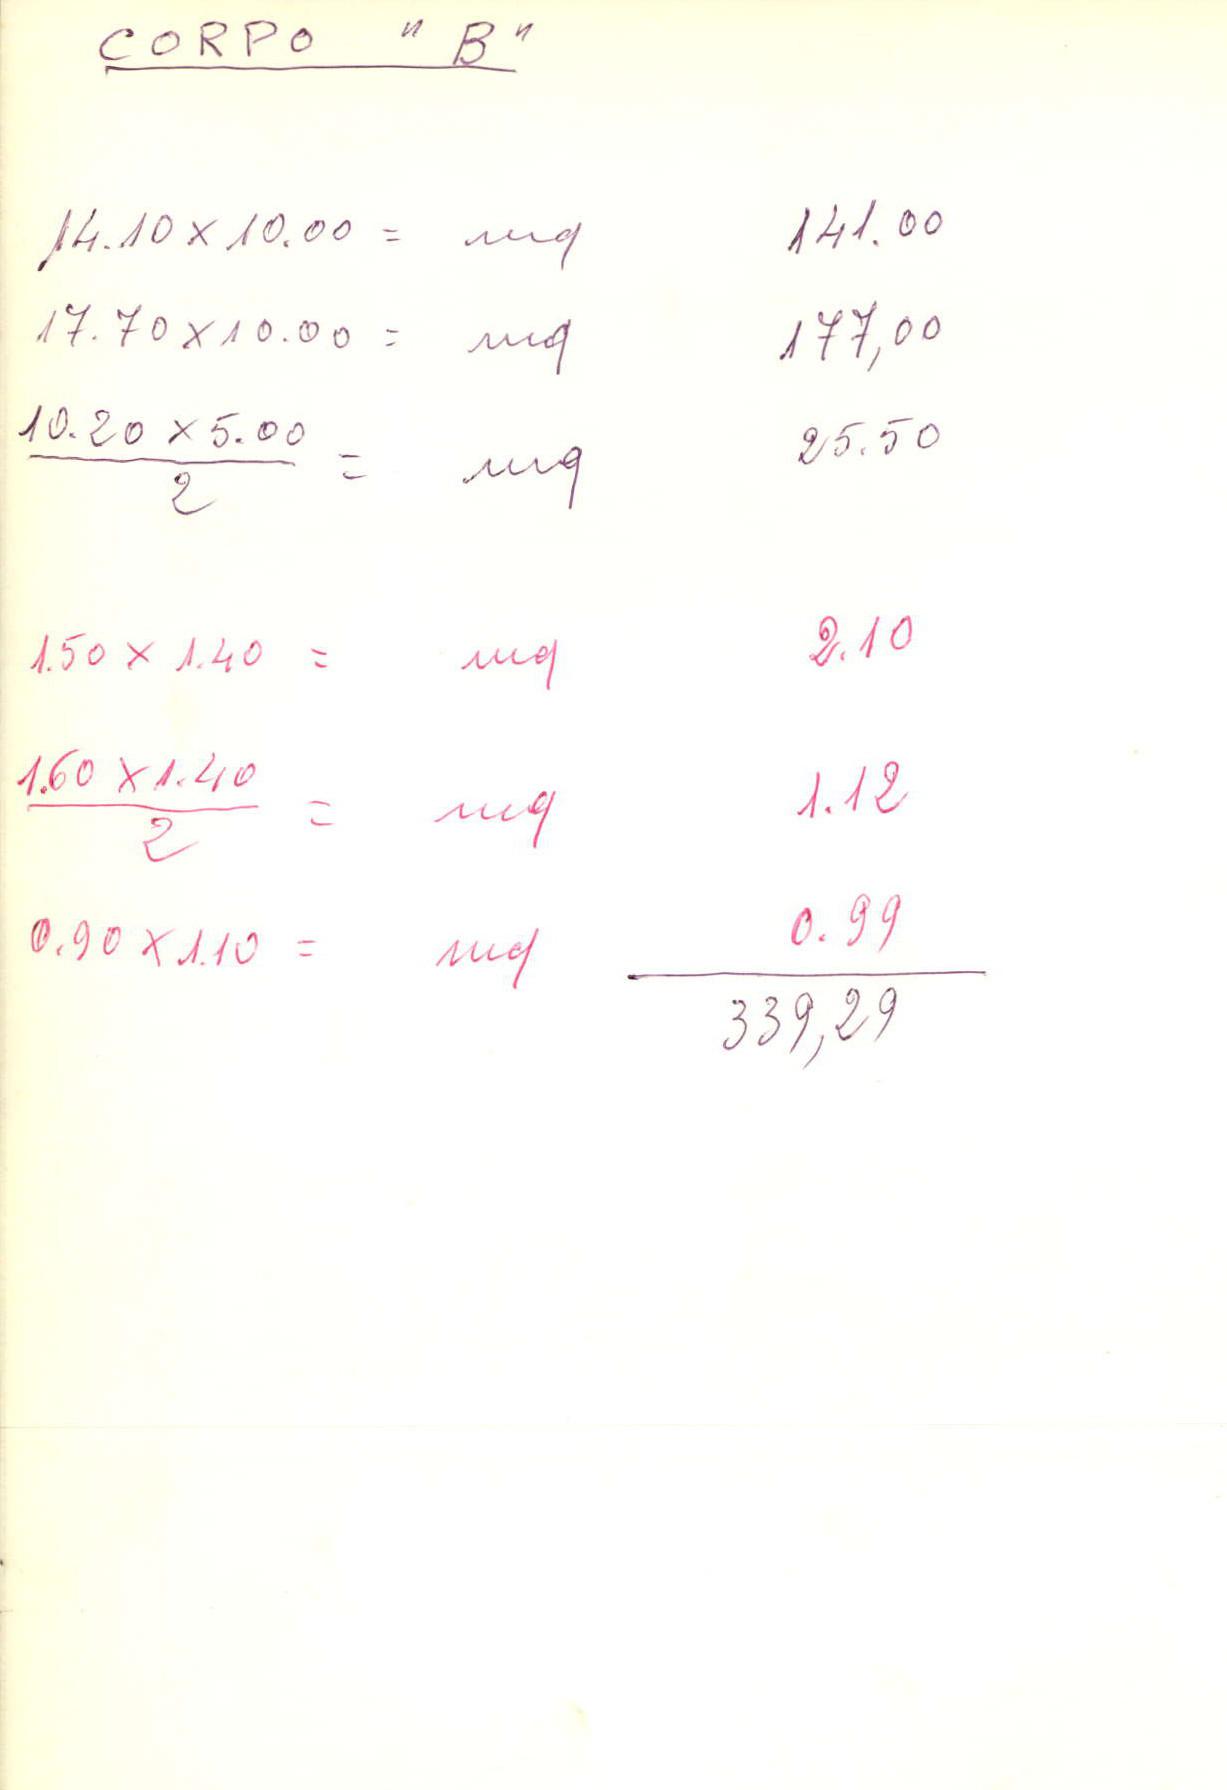 CORPO "B"
14.10 x 10.00 = mq 141.00
17.70 x 10.00 = mq 177,00
10.20 x 5.00
2 = mq 25.50
1.50 x 1.40 = mq 2.10
1.60 x 1.40
2 = mq 1.12
0.90 x 1.10 = mq 0.99
339,29